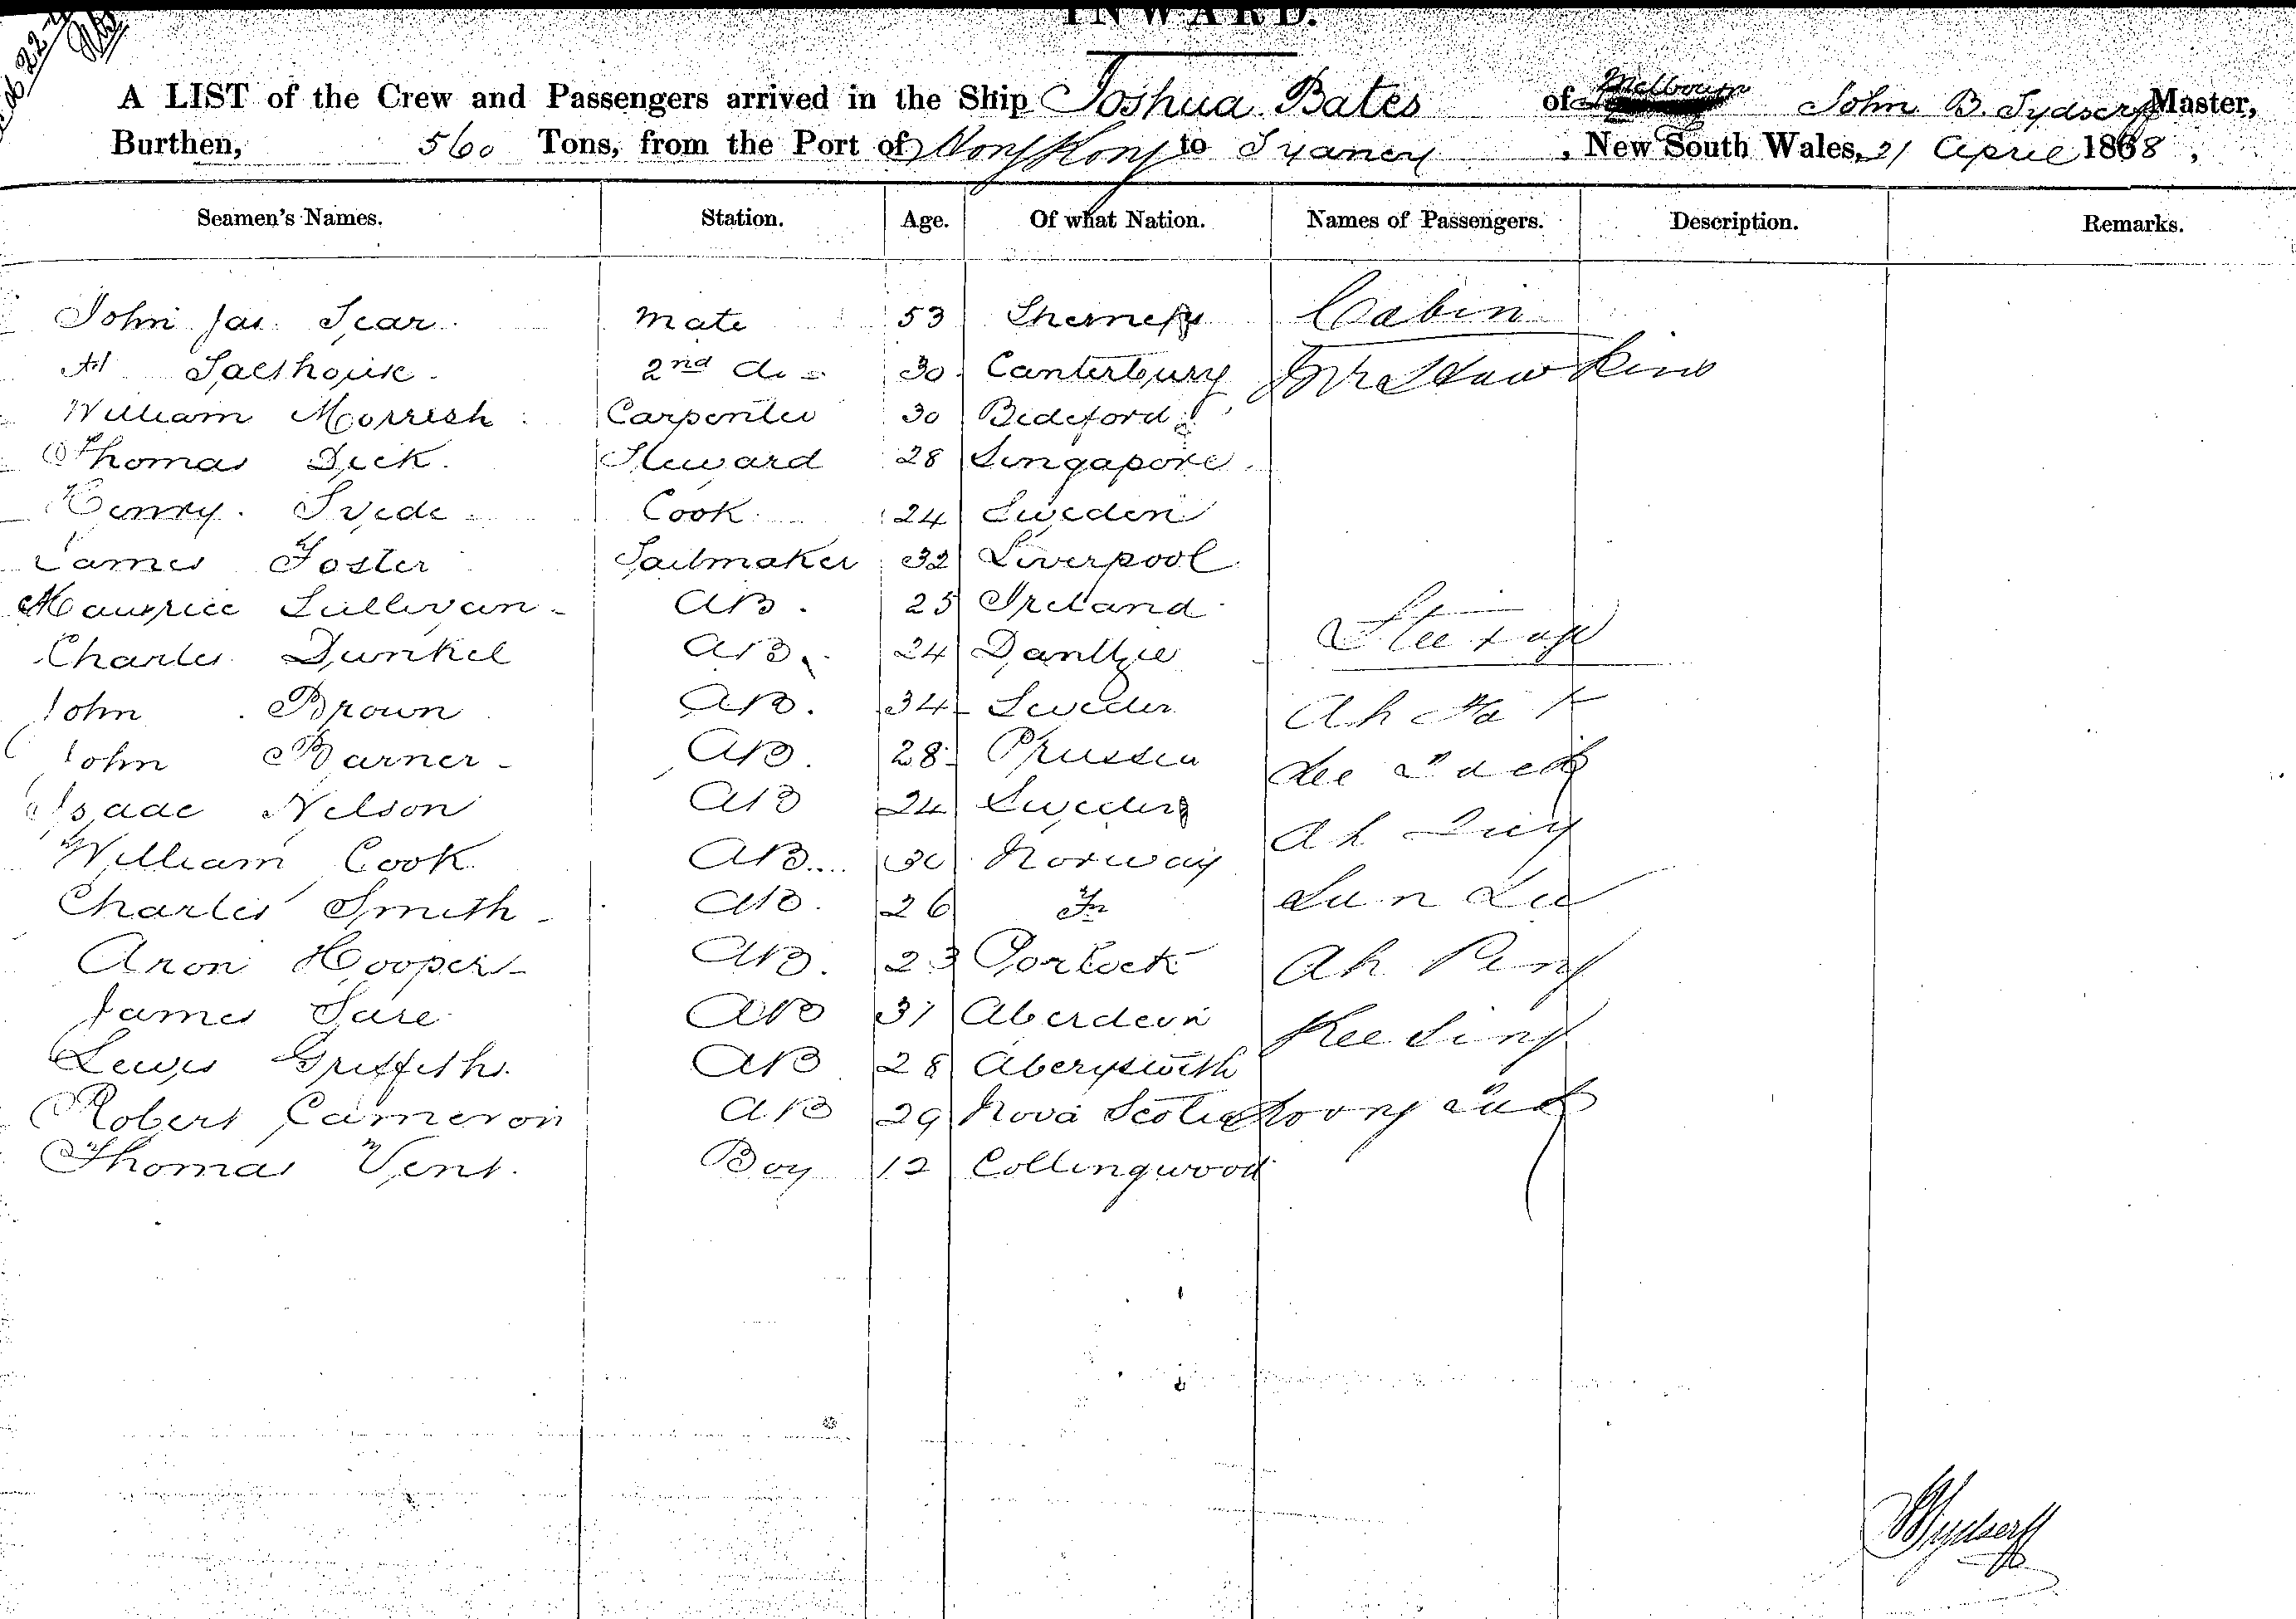 INWARD.
A LIST of the Crew and Passengers arrived in the Ship Joshua Bates of Melbourn John B. Sydserff Master,
Burthen, 560 Tons, from the Port of Hong Kong to Sydney, New South Wales, 21 April 1868,
Seamen's Names. Station. Age. Of what Nation. Names of Passengers. Description. Remarks.
John Jas. Scar Mate 53 Cabin
Salthouse 2nd do 30 Canterbury Mr Hawkins
William Morrish Carpenter 30 Bideford
Thomas Dick Steward 28 Singapore
Henry Svede Cook 24 Sweden
James Foster Sailmaker 32 Liverpool
Maurice Sullivan AB. 25 Ireland
Steerage
Charles Dunkel AB. 24 Dantzic
John Brown AB. 34 Sweden Ah
John Barner AB. 28 Prussia Lee
Isaac Nelson AB 24 Sweden
William Cook AB 30 Norway Ah
Charles Smith AB. 26 Sun Lee
Aron Hooper AB. 23 Porlock Ah Ping
James Sare AB 31 Aberdeen Kee Sing
Lewis Griffiths AB 28 Aberyswith
Robert Cameron AB 29 Nova Scotia
Thomas Vent. Boy 12 Collingwood
Sydserff